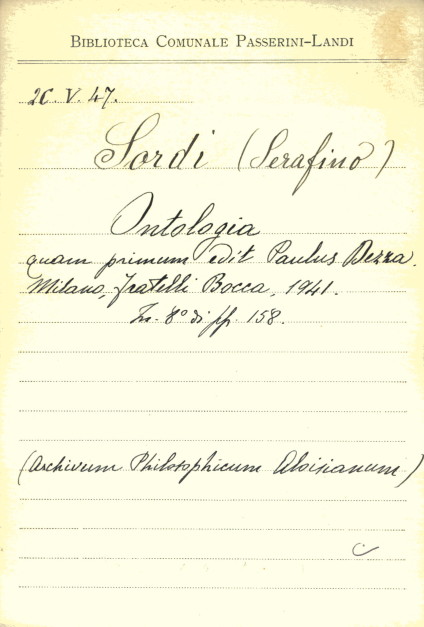 BIBLIOTECA COMUNALE PASSERINI-LANDI
2C. V. 47.
Sordi (Serafino)
Ontologia
quam primum edit Paulus Dezza.
Milano, Fratelli Bocca, 1941.
In-8° di pp. 158.
(Archivum Philosophicum Aloisianum)